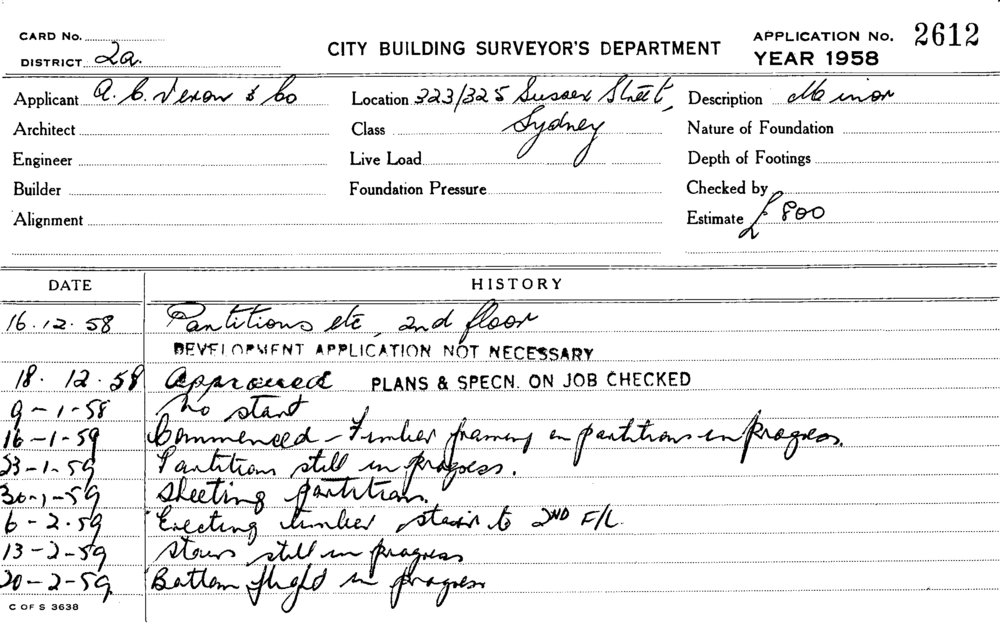 CARD No.
CITY BUILDING SURVEYOR'S DEPARTMENT
APPLICATION No. 2612
DISTRICT 2a.
YEAR 1958
Applicant A. C. & Co
Location 323/325 Sussex Street,
Description Minor
Architect
Class Sydney
Nature of Foundation
Engineer
Live Load
Depth of Footings
Builder
Foundation Pressure
Checked by
Alignment
Estimate £800
DATE
HISTORY
16.12.58 Partitions etc, 2nd floor
DEVELOPMENT APPLICATION NOT NECESSARY
18.12.58 Approved PLANS & SPECN. ON JOB CHECKED
9-1-58 No start
16-1-59 Commenced - Timber framing in partitions in progress.
23-1-59 Partitions still in progress.
30-1-59 Sheeting partitions.
6-2-59 Erecting timber stairs to 2ND F/L.
13-2-59 Stairs still in progress
20-2-59 Bottom flight in progress
C OF S 3638